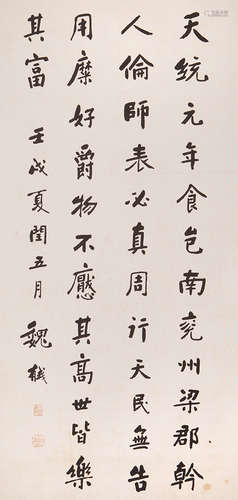 天統元年食邑南兖州梁郡幹
人倫師表必真周行天民無告
用糜好爵物不癊其高世皆樂
其富 壬戌夏閏五月 魏戫